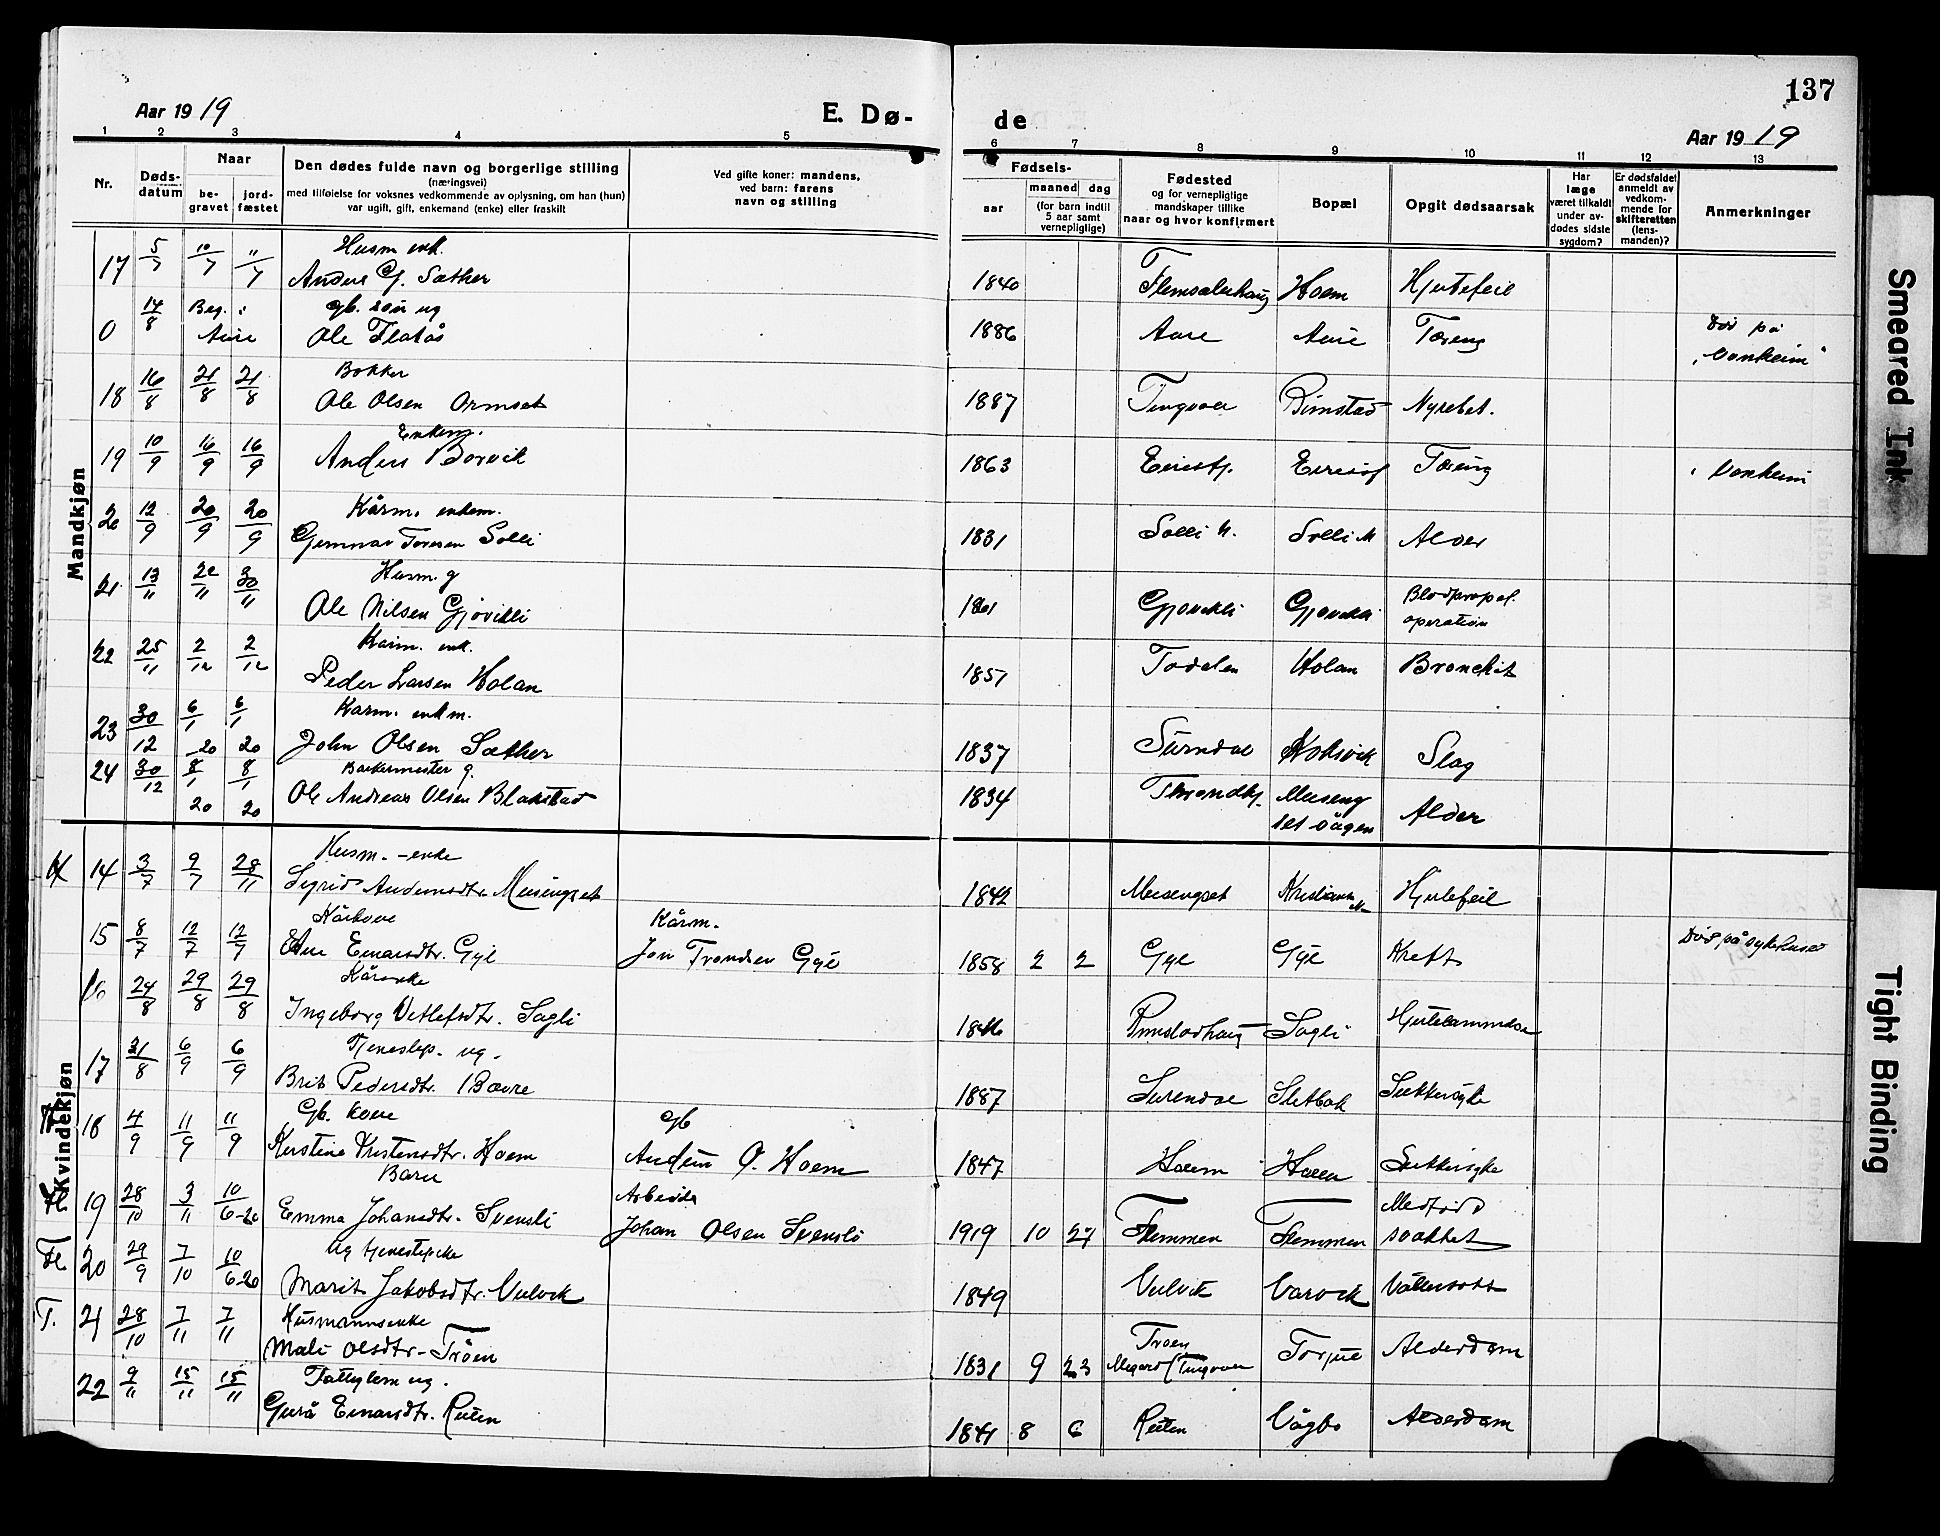 137
Aar 1919
E. Dø-
de
Aar 1919
1 2 3 4 5 6 7 8 9 10 11 12 13
Nr.
Døds-
datum
Naar
be-
gravet
jord-
fæstet
Den dødes fulde navn og borgerlige stilling
(næringsvei)
med tilføielse for voksnes vedkommende av oplysning, om han (hun)
var ugift, gift, enkemand (enke) eller fraskilt
Ved gifte koner: mandens,
ved barn: farens
navn og stilling
Fødsels-
aar
maaned dag
(for barn indtil
5 aar samt
vernepligtige)
Fødested
og for vernepligtige
mandskaper tillike
naar og hvor konfirmert
Bopæl
Opgit dødsaarsak
Har
læge
været tilkaldt
under av-
dødes sidste
sygdom?
Er dødsfaldet
anmeldt av
vedkom-
mende for
skifteretten
(lens-
manden)?
Anmerkninger
Mandkjøn
Husm enk.
17 5/7 10/7 "/7 Anders G. Sæther 1840 Hoem Hjertefeil
gb. søn ug
0 14/8 Beg. i Aure Ole Flatås 1886 Aure Aure Tæring Død på "Vonheim"
Bøkker
18 16/8 21/8 21/8 Ole Olsen Ormset 1887 Tingvoll Rimstad Nyrebet.
Enkem.
19 10/9 16/9 16/9 Anders Børvik 1863 Eirisfj. Eirisfj Tæring Vonheim
Kårm. enkem.
20 12/9 20/9 20/9 Toresen Solli 1831 Solli M. Solli M Alder
Husm. g
21 13/11 22/11 30/11 Ole Nilsen Gjøvikli 1861 Gjøvikli Gjøvikli Blodpropp. operation
Kårm. enk.
22 25/11 2/12 2/12 Peder Larsen Holan 1857 Todalen Holan Bronchit
Kårm. enkm.
23 30/12 6/1 20 6/1 20 John Olsen Sæther 1837 Surndal Koksvik Slag
Bakermester g.
24 30/12 8/1 20 8/1 20 Ole Andreas Olsen Blakstad 1834 Trondhj. Meisingset vågen Alder
Kvindekjøn
Husm.-enke
14 3/7 9/7 28/11 Sigrid Andersdtr. Meisingset 1842 Meisingset Kristiansu. Hjertefeil
Kårkone Kårm.
15 8/7 12/7 12/7 Ane Einarsdtr. Gyl Jon Trondsen Gyl 1858 2 2 Gyl Gyl Kreft Død på sykehuset
Kårenke
16 24/8 29/8 29/8 Ingeborg Detlefsdtr. Sagli 1846 Rimstadhaug Sagli Hjertelammelse
Tjenestep. ug.
17 31/8 6/9 6/9 Brit Pedersdtr. Bævre 1887 Surendal Sletbak Sukkersyke
Gb. kone gb
18 4/9 11/9 11/9 Kirstine Kristensdtr. Hoem Anders O. Hoem 1847 Hoem Hoem Sukkersyke
Barn Arbeider
Fl 19 28/10 3/11 10/6-20 Emma Johansdtr. Svensli Johan Olsen Svensli 1919 10 27 Flemmen Flemmen Medfødt svakhet
Ug tjenestepike
Fl 20 29/9 7/10 10/6-20 Marit Jakobsdtr. Vulvik 1849 Vulvik Varvik Vattersott
Husmannsenke
T. 21 28/10 7/11 7/11 Mali Olsdtr. Trøen 1831 9 23 Trøen Megard (Tingvoll Torjul Alderdom
Fattiglem ug.
22 9/11 15/11 15/11 Gurå Einarsdtr. Reiten 1841 8 6 Reiten Vågbø Alderdom
Smeared Ink
Tight Binding